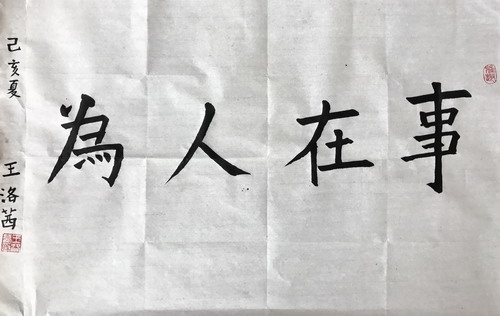 事在人為
己亥夏
王洛茜